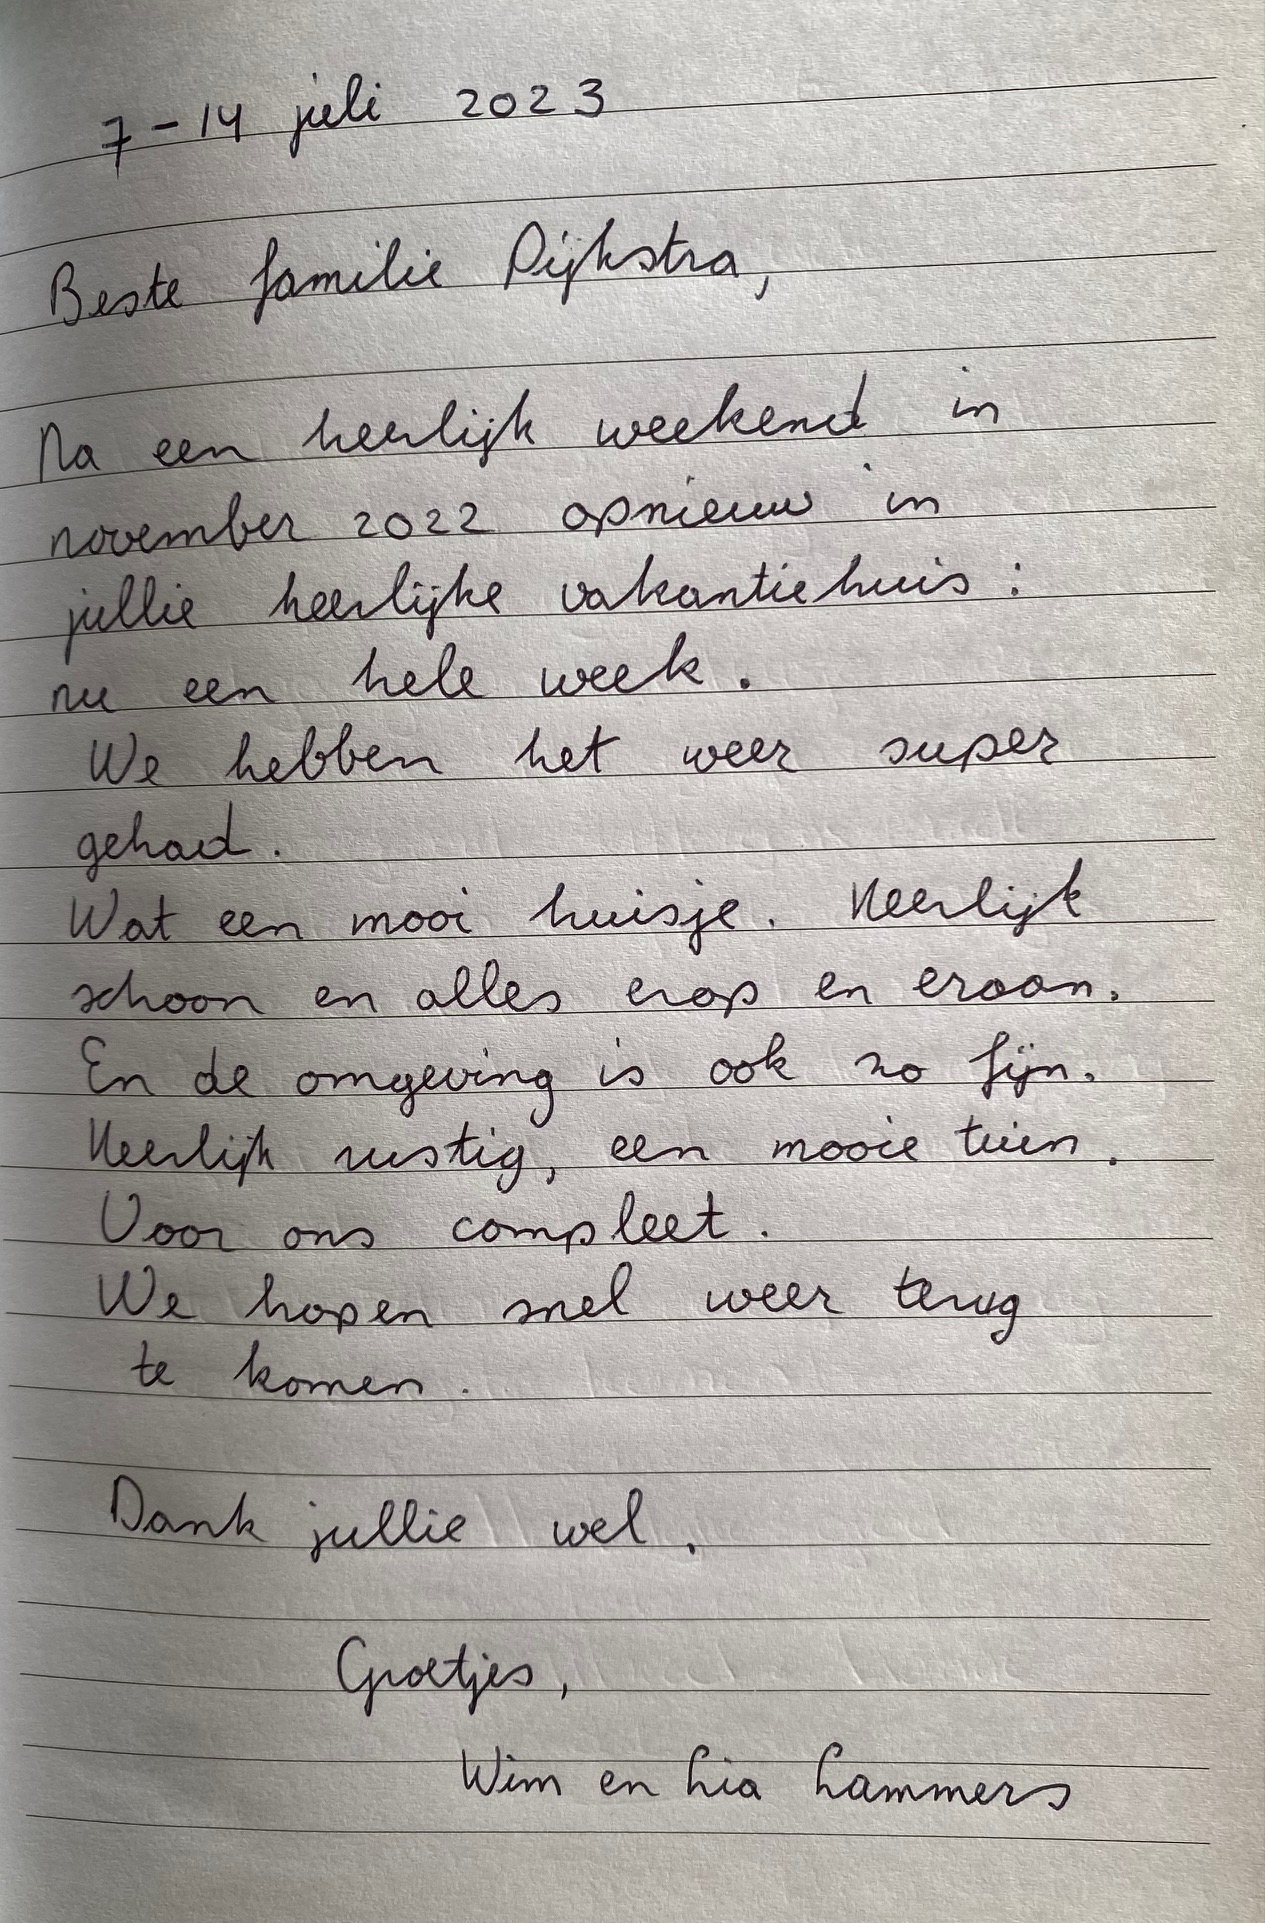 7-14 juli 2023
Beste familie Dijkstra,
Na een heerlijk weekend in
november 2022 opnieuw in
jullie heerlijke vakantiehuis:
nu een hele week.
We hebben het weer super
gehad.
Wat een mooi huisje. Heerlijk
schoon en alles erop en eraan.
En de omgeving is ook zo fijn.
Heerlijk rustig, een mooie tuin.
Voor ons compleet.
We hopen snel weer terug
te komen.
Dank jullie wel.
Groetjes,
Wim en Lia Lammers